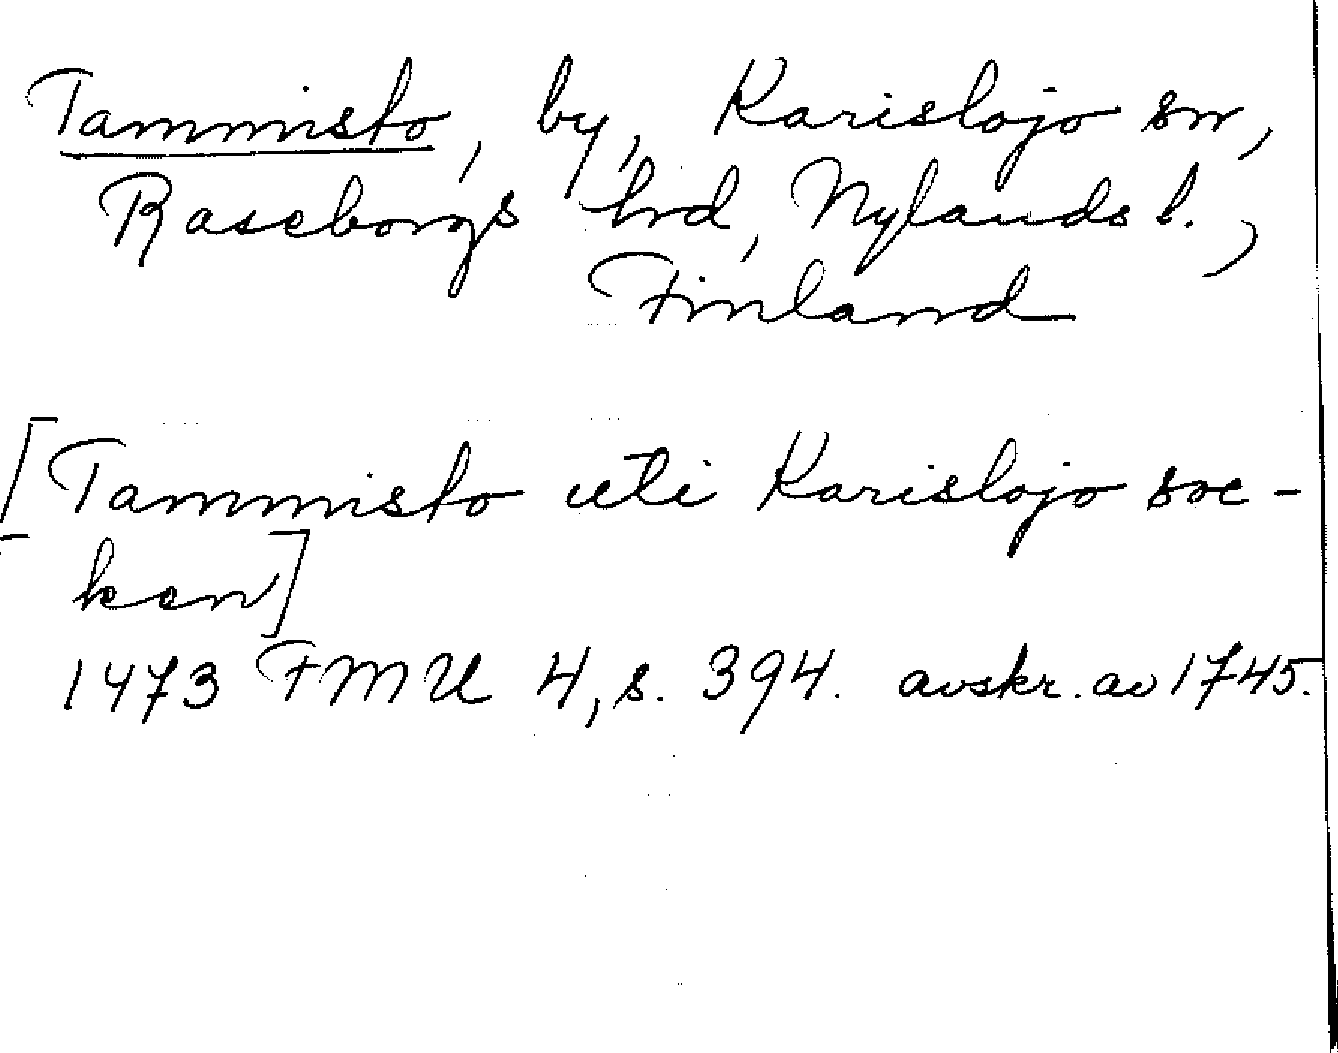 Tammisto, by, Karislojo sn,
Raseborgs hrd, Nylands l.,
Finland
[Tammisto uti Karislojo soc-
ken]
1473 FMU 4, s. 394. avskr. av 1745.